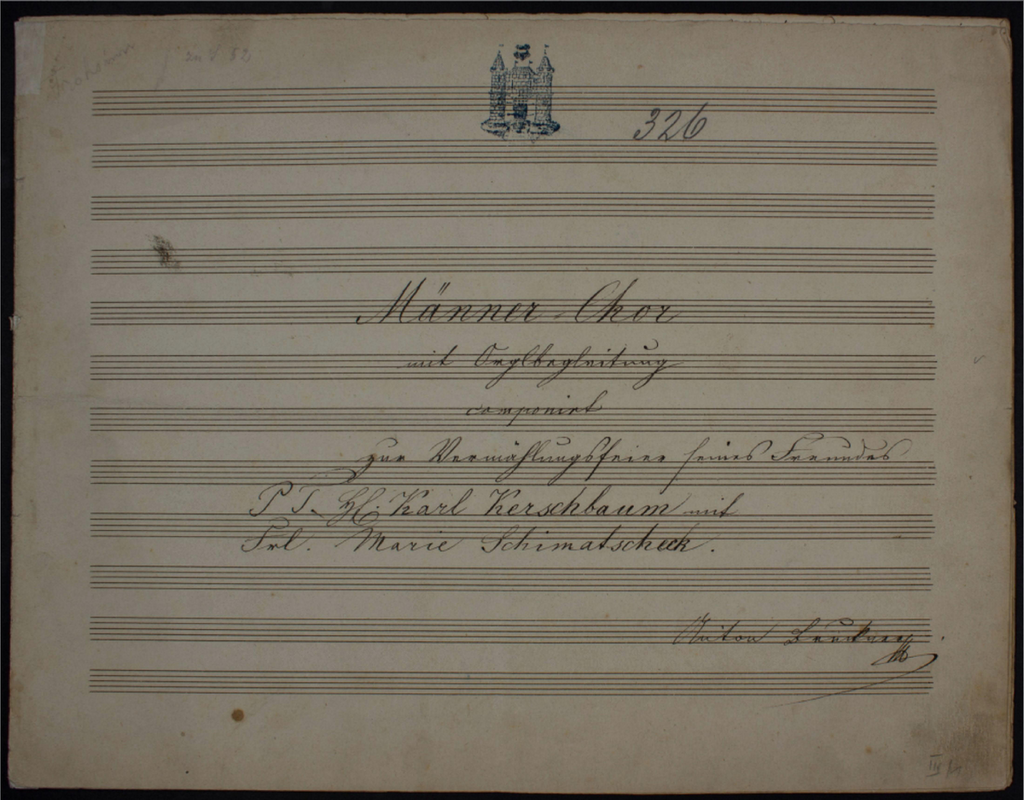 326
Männer-Chor
mit Orglbegleitung
componirt
zur Vermählungsfeier seines Freundes
P. T. H. Karl Kerschbaum mit
Frl. Marie Schimatscheck.
Anton Bruckner
III